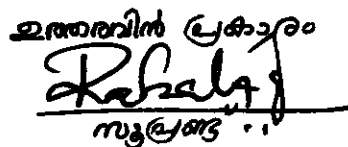 ഉത്തരവിൻ പ്രകാരം
സൂപ്രണ്ട്